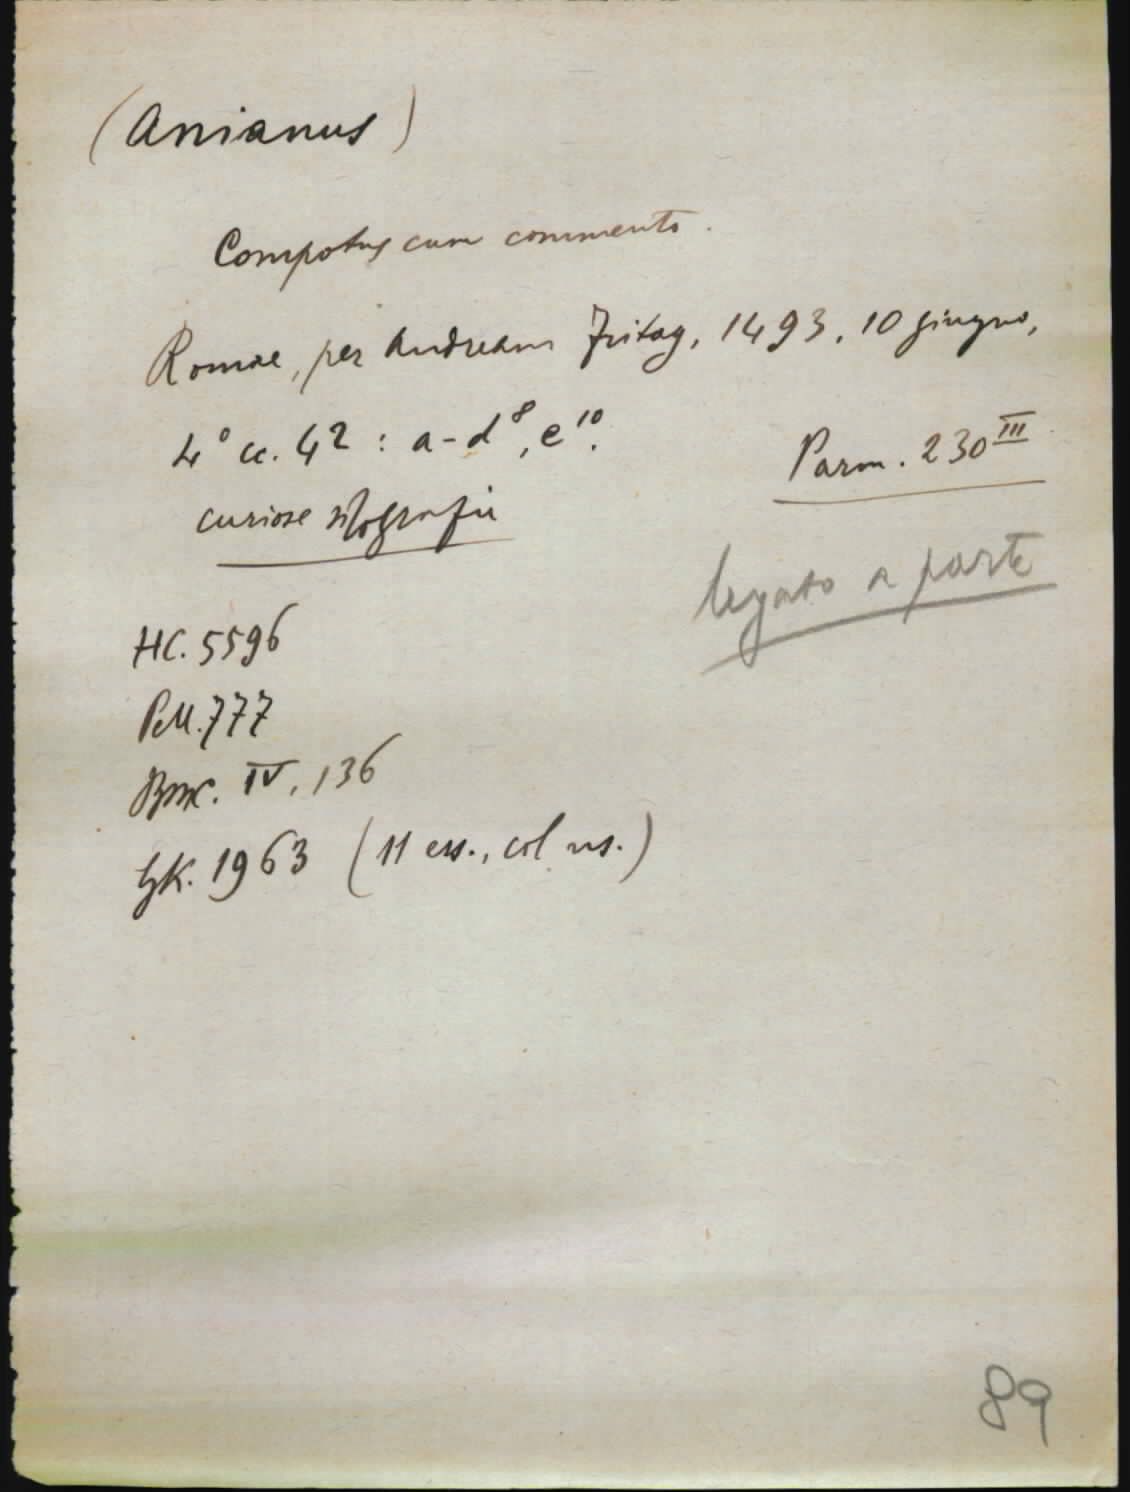 (Anianus)
Compotus cum commento.
Romae, per Andream Fritag, 1493, 10 giugno,
4° cc. 42 : a-d⁸, e¹⁰.
Parm. 230 III
curiose silografie
legato a parte
HC. 5596
Pell. 777
BMC. IV, 136
GK. 1963 (11 ess., col ns.)
89